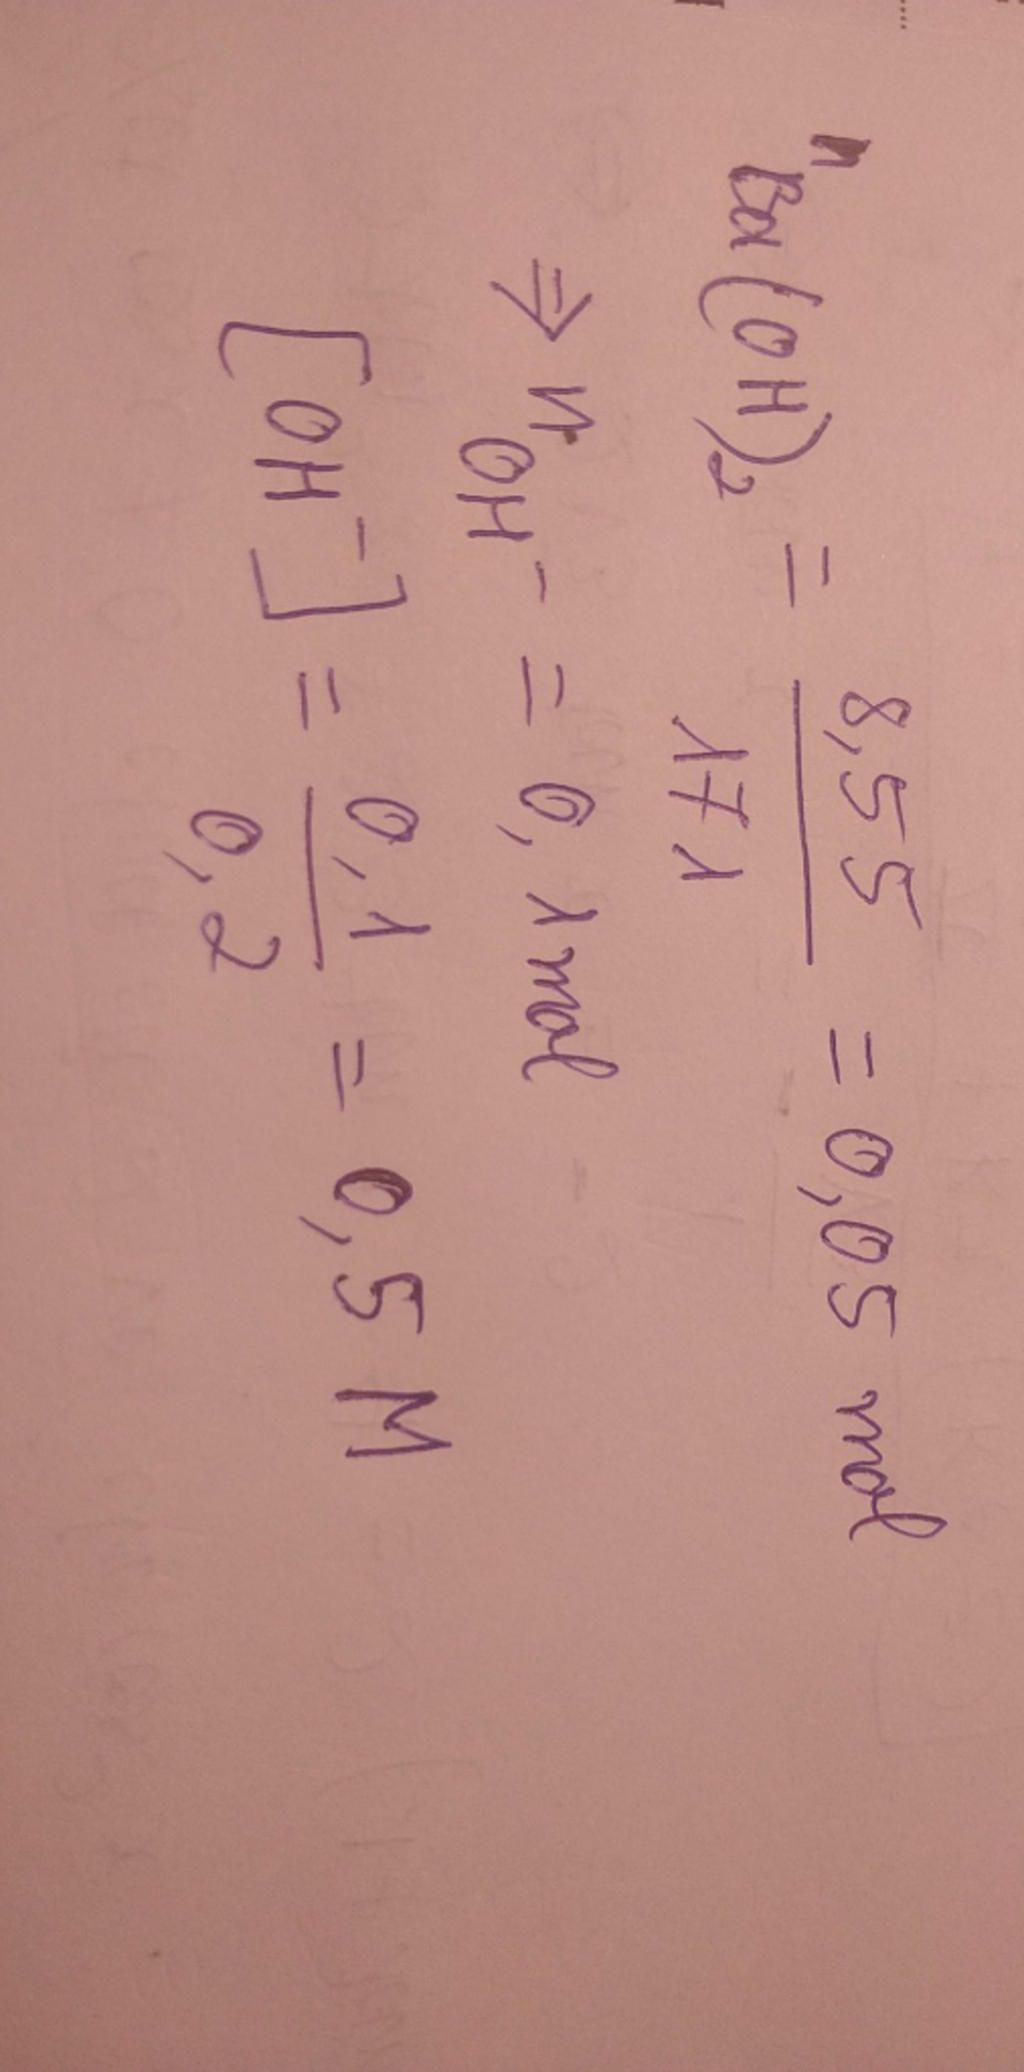 nBa(OH)2 = 8,55 / 171 = 0,05 mol
⇒ nOH- = 0,1 mol
[OH-] = 0,1 / 0,2 = 0,5 M